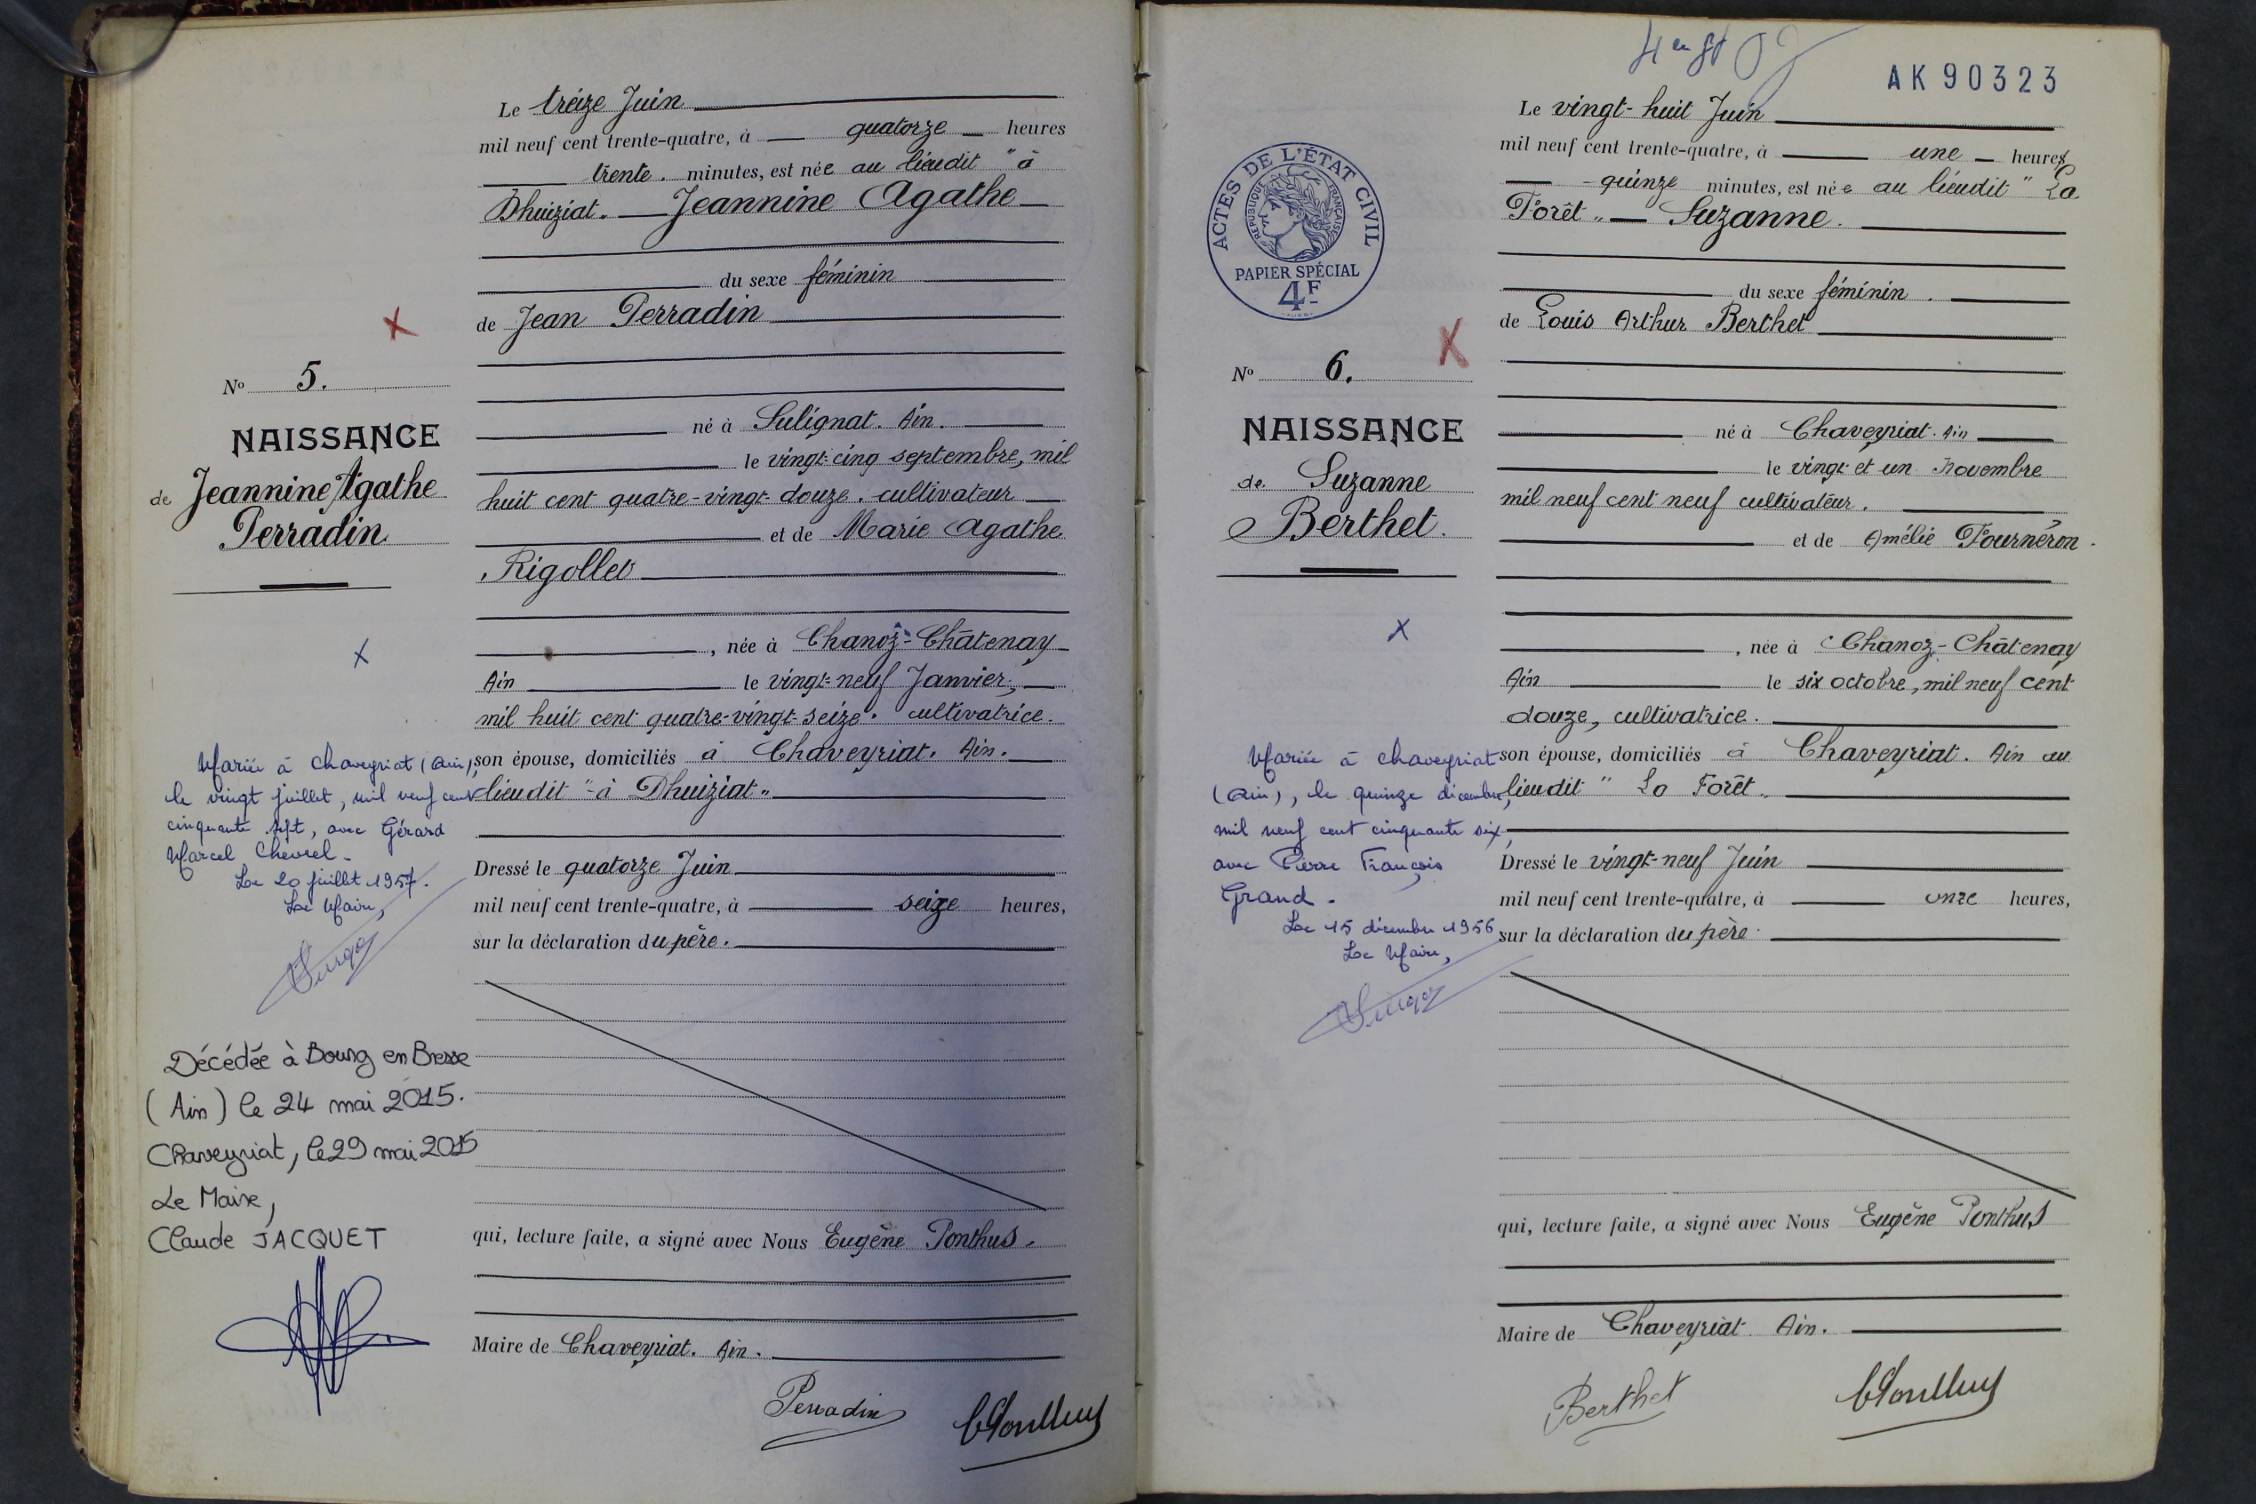 Le treize Juin
mil neuf cent trente-quatre, à quatorze heures
trente. minutes, est née au lieudit "à
Dhuiziat. Jeannine Agathe
du sexe féminin
de Jean Perradin
No 5.
né à Sulignat. Ain.
NAISSANCE
le vingt-cinq septembre, mil
de Jeannine Agathe
huit cent quatre-vingt-douze. cultivateur
Perradin
et de Marie Agathe
Rigollet
, née à Chanoz-Châtenay
Ain le vingt-neuf Janvier,
mil huit cent quatre-vingt-seize. cultivatrice.
son épouse, domiciliés à Chaveyriat. Ain.
lieudit "à Dhuiziat"
Mariée à Chaveyriat (Ain),
le vingt juillet, mil neuf cent
cinquante sept, avec Gérard
Marcel Chevrel.
Le 20 juillet 1957.
Le Maire,
Dressé le quatorze Juin
mil neuf cent trente-quatre, à seize heures,
sur la déclaration du père.
Décédée à Bourg en Bresse
(Ain) le 24 mai 2015.
Chaveyriat, le 29 mai 2015
Le Maire,
Claude JACQUET
qui, lecture faite, a signé avec Nous Eugène Ponthus.
Maire de Chaveyriat. Ain.
Perradin
AK 90323
Le vingt-huit Juin
mil neuf cent trente-quatre, à une heures
quinze minutes, est née au lieudit "La
Forêt" Suzanne.
ACTES DE L'ÉTAT CIVIL
RÉPUBLIQUE FRANÇAISE
PAPIER SPÉCIAL
4F
du sexe féminin.
de Louis Arthur Berthet
No 6.
NAISSANCE
né à Chaveyriat. Ain
le vingt et un novembre
de Suzanne
mil neuf cent neuf cultivateur.
Berthet.
et de Amélie Fourneron.
, née à Chanoz-Châtenay
Ain le six octobre, mil neuf cent
douze, cultivatrice.
son épouse, domiciliés à Chaveyriat. Ain au
lieudit "La Forêt"
Mariée à Chaveyriat
(Ain), le quinze décembre,
mil neuf cent cinquante six,
avec Pierre François
Grand.
Le 15 décembre 1956
Le Maire,
Dressé le vingt-neuf Juin
mil neuf cent trente-quatre, à onze heures,
sur la déclaration du père.
qui, lecture faite, a signé avec Nous Eugène Ponthus
Maire de Chaveyriat Ain.
Berthet